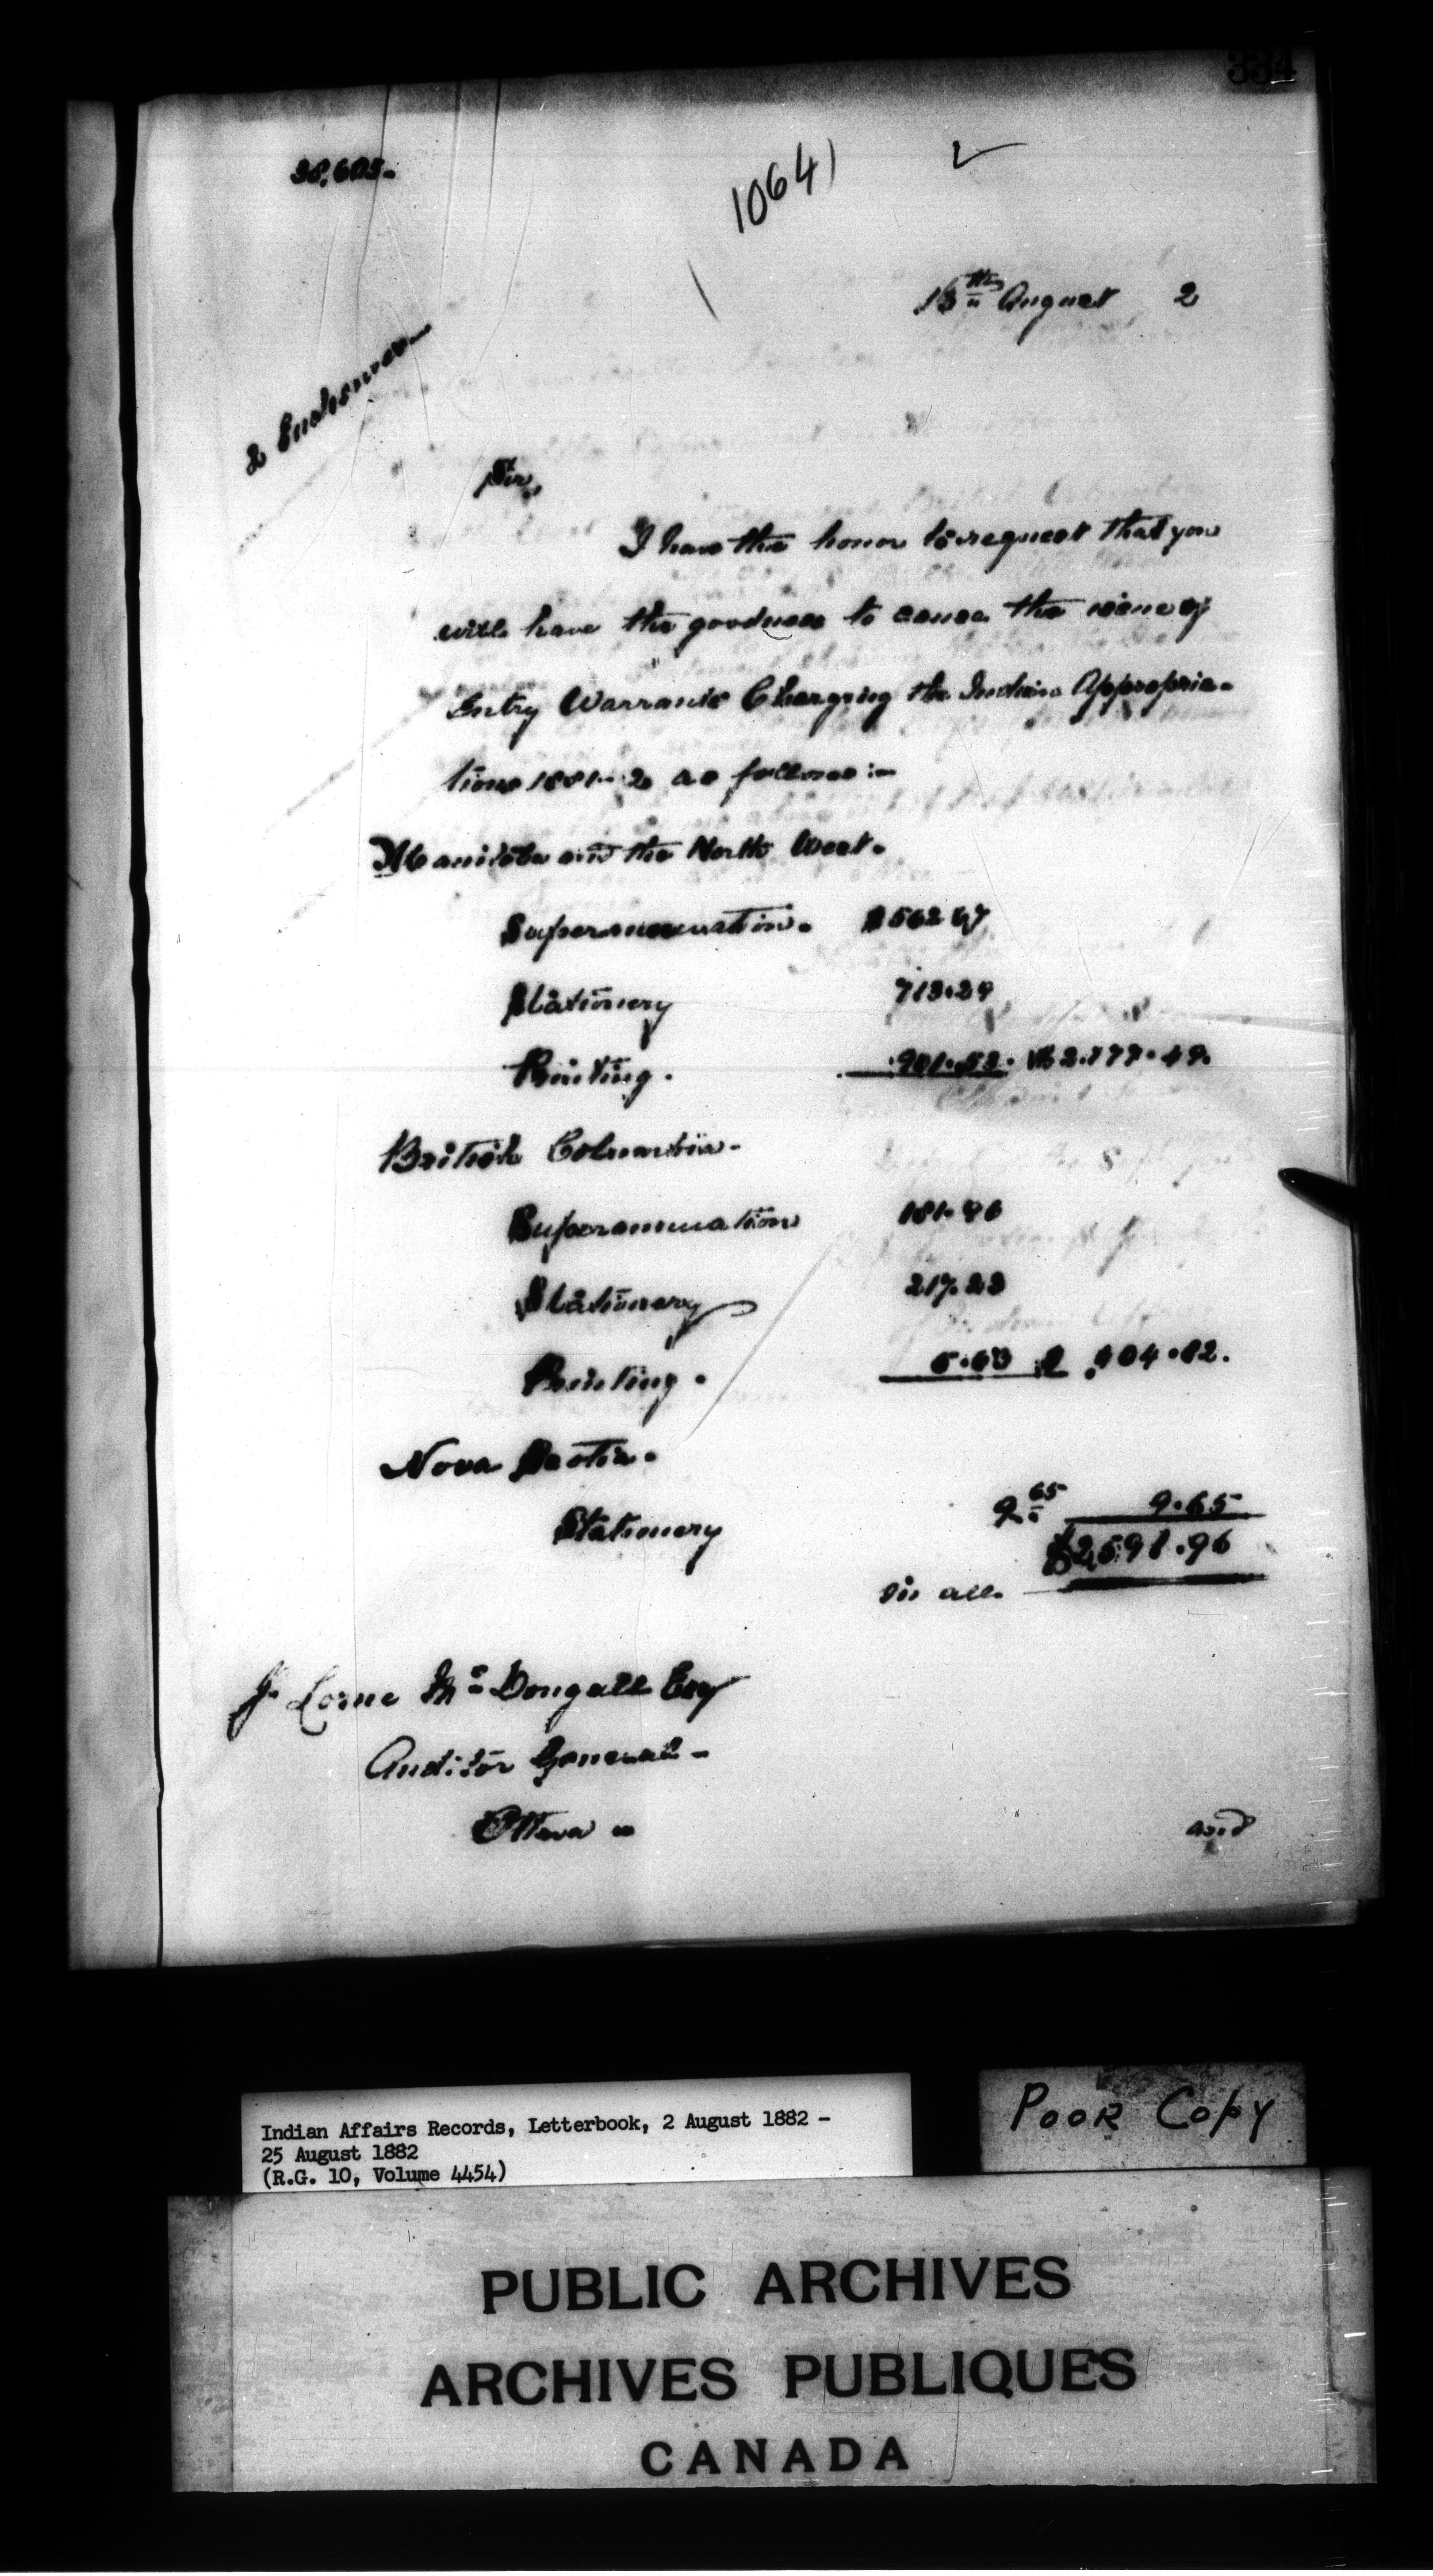 334
38,603.
1064)
15th August 2
2 Enclosures
Sir,
I have the honor to request that you
will have the goodness to cause the issue of
Entry Warrants Charging the Indian Appropria-
tions 1881-2 as follows:-
Manitoba and the North West.
Superannuation. $562 67
Stationery 713.29
Printing. 901.53. $2.177.49.
British Columbia-
Superannuation 181.96
Stationery 217.23
Printing. 5.63 $ 404.82.
Nova Scotia.
Stationery 9.65 9.65
$2,591.96
in all.
J. Lorne McDougall Esq
Auditor General-
Ottawa
and
Indian Affairs Records, Letterbook, 2 August 1882 -
25 August 1882
(R.G. 10, Volume 4454)
POOR COPY
PUBLIC ARCHIVES
ARCHIVES PUBLIQUES
CANADA